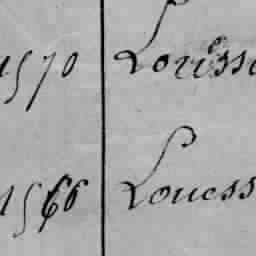 1570 Louess
1566 Louess